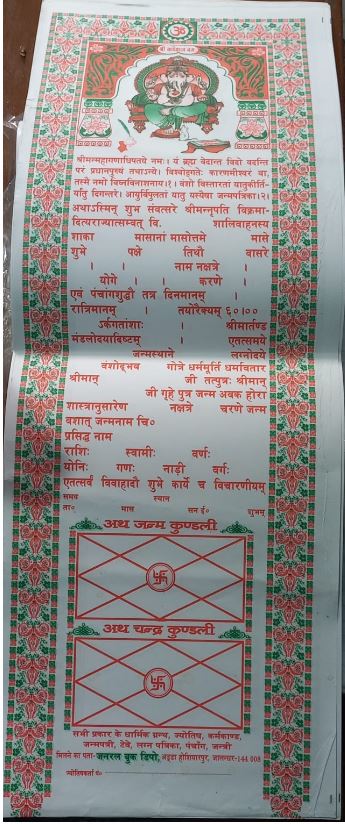 ॐ
श्रीमन्महागणाधिपतये नमः। यं ब्रह्म वेदान्त विदो वदन्ति
परं प्रधानपुरुषं तथाऽन्ये। विश्वोद्गतेः कारणमीश्वरं वा,
तस्मै नमो विघ्नविनाशनाय।१। वंशो विस्तारतां यातुकीर्ति-
र्यातु दिगन्तरे। आयुर्विपुलतां यातु यस्यैषा जन्मपत्रिका।२।
अथाऽस्मिन् शुभ संवत्सरे श्रीमन्नृपति विक्रमा-
दित्यराज्यात्सम्वत् वि. शालिवाहनस्य
शाका मासानां मासोत्तमे मासे
शुभे पक्षे तिथौ वासरे
। । नाम नक्षत्रे ।
योगे । करणे ।
एवं पंचांगशुद्धौ तत्र दिनमानम् ।
रात्रिमानम् । तयोरैक्यम् ६०।००
ऽर्कगतांशाः श्रीमार्तण्ड
मंडलोदयादिष्टम् एतत्समये
जन्मस्थाने लग्नोदये
वंशोद्भव गोत्रे धर्ममूर्ति धर्मावतार
श्रीमान् जी तत्पुत्रः श्रीमान्
जी गृहे पुत्र जन्म अवक होरा
शास्त्रानुसारेण नक्षत्रे चरणे जन्म
वशात् जन्मनाम चि०
प्रसिद्ध नाम
राशिः स्वामीः वर्णः
योनिः गणः नाड़ी वर्गः
एतत्सर्वं विवाहादौ शुभे कार्ये च विचारणीयम्
समय स्थान
ता० मास सन ई० शुभम्
अथ जन्म कुण्डली
अथ चन्द्र कुण्डली
सभी प्रकार के धार्मिक ग्रन्थ, ज्योतिष, कर्मकाण्ड,
जन्मपत्री, टेवे, लग्न पत्रिका, पंचांग, जन्त्री
मिलने का पता-जनरल बुक डिपो, अड्डा होशियारपुर, जालन्धर-144 008
ज्योतिषकर्ता पं०